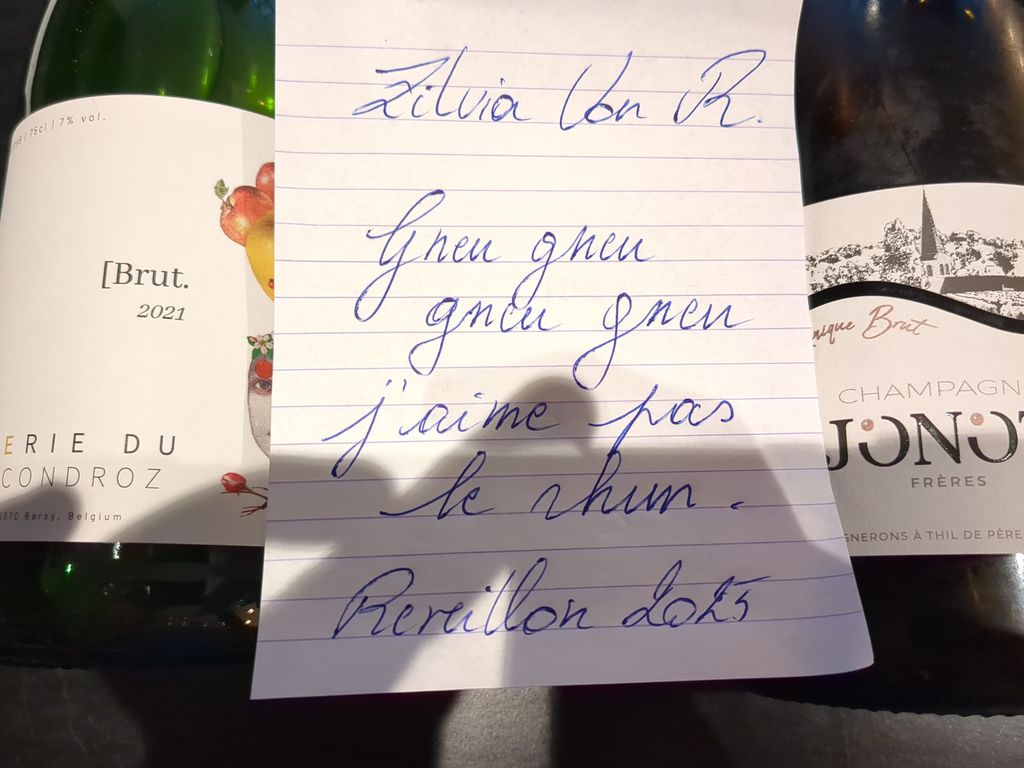 75cl | 7% vol.
[Brut.
2021
ERIE DU
CONDROZ
Barsy, Belgium
Zilvia Von R.
Gneu gneu
gneu gneu
j'aime pas
le rhum.
Reveillon 2025
nique Brut
CHAMPAGN
JONOT
FRÈRES
GNERONS À THIL DE PÈRE